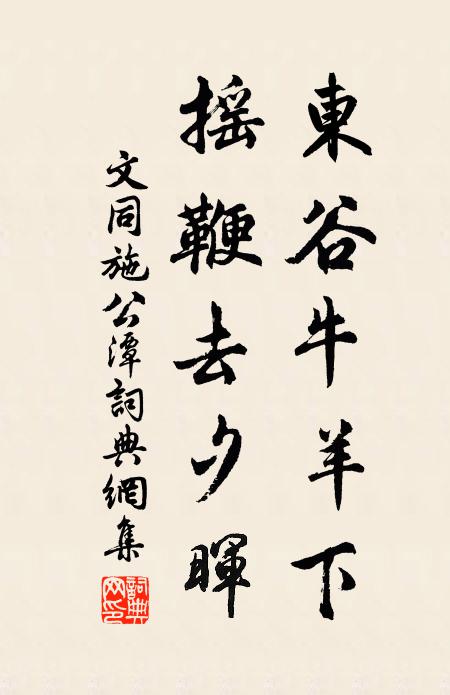 東谷牛羊下
搖鞭去夕暉
文同施公潭詞典網集
詞典網印